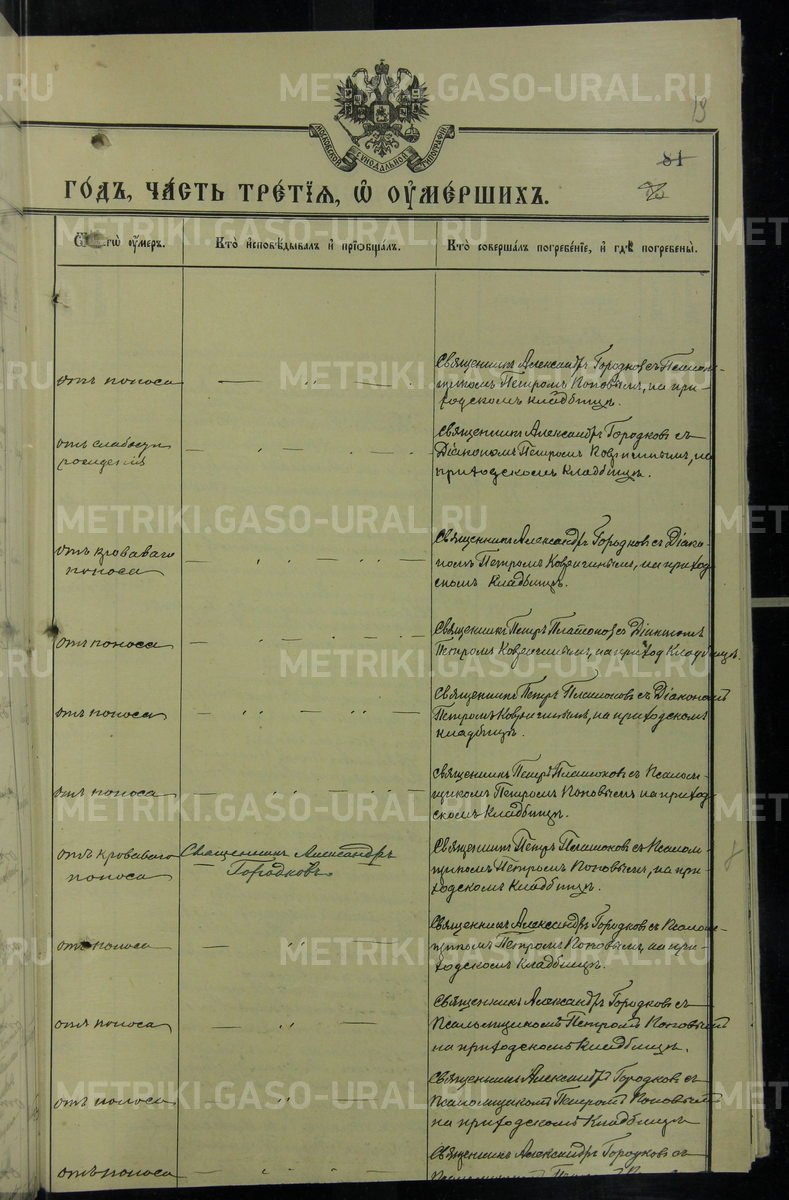 METRIKI.GASO-URAL.RU
19
МОСКОВСКОЙ СѴНОДАЛЬНОЙ ТИПОГРАФІИ
81
ГО́ДЪ, ЧА́СТЬ ТРЕ́ТІѦ, Ѡ҆ ОУ҆МЕ́РШИХЪ.
ѿ чегѡ̀ оу҆́меръ.
Кто̀ и҆сповѣ́дывалъ и҆ прїѡбща́лъ.
Кто̀ соверша́лъ погребе́нїе, и҆ гдѣ̀ погребены̀.
отъ поноса
Священникъ Александръ Городковъ съ Псалом-
щикомъ Петромъ Поповымъ, на при-
ходскомъ кладбищѣ.
отъ слабости
рожденія
Священникъ Александръ Городковъ съ
Діакономъ Петромъ Ковригинымъ, на
приходскомъ Кладбищѣ.
отъ кроваваго
поноса
Священникъ Александръ Городковъ съ Діако-
номъ Петромъ Ковригинымъ, на приход-
скомъ Кладбищѣ.
отъ поноса
Священникъ Петръ Платоновъ съ Діакономъ
Петромъ Ковригинымъ, на приход Кладбищѣ.
отъ поноса
Священникъ Петръ Платоновъ съ Діакономъ
Петромъ Ковригинымъ, на приходскомъ
кладбищѣ.
отъ поноса
Священникъ Петръ Платоновъ съ Псалом-
щикомъ Петромъ Поповымъ на приход-
скомъ Кладбищѣ.
отъ кроваваго
поноса
Священникъ Александръ
Городковъ
Священникъ Петръ Платоновъ съ Псалом-
щикомъ Петромъ Поповымъ, на при-
ходскомъ Кладбищѣ.
отъ поноса
Священникъ Александръ Городковъ съ Псалом-
щикомъ Петромъ Поповымъ, на при-
ходскомъ Кладбищѣ.
отъ поноса
Священникъ Александръ Городковъ съ
Псаломщикомъ Петромъ Поповымъ
на приходскомъ Кладбищѣ.
отъ поноса
Священникъ Александръ Городковъ съ
Псаломщикомъ Петромъ Поповымъ
на приходскомъ Кладбищѣ
отъ поноса
Священникъ Александръ Городковъ съ
Псаломщикомъ Петромъ Поповымъ